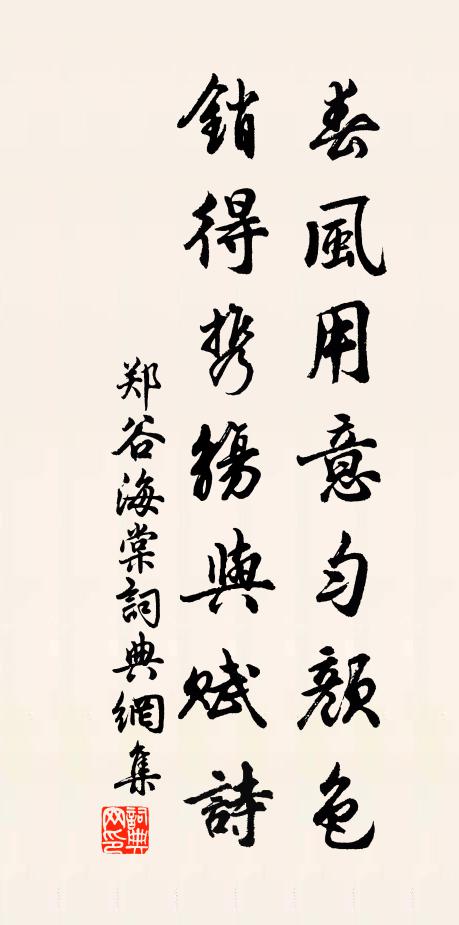 春風用意勻顏色
銷得携觴與賦詩
郑谷海棠詞典網集
詞典網印